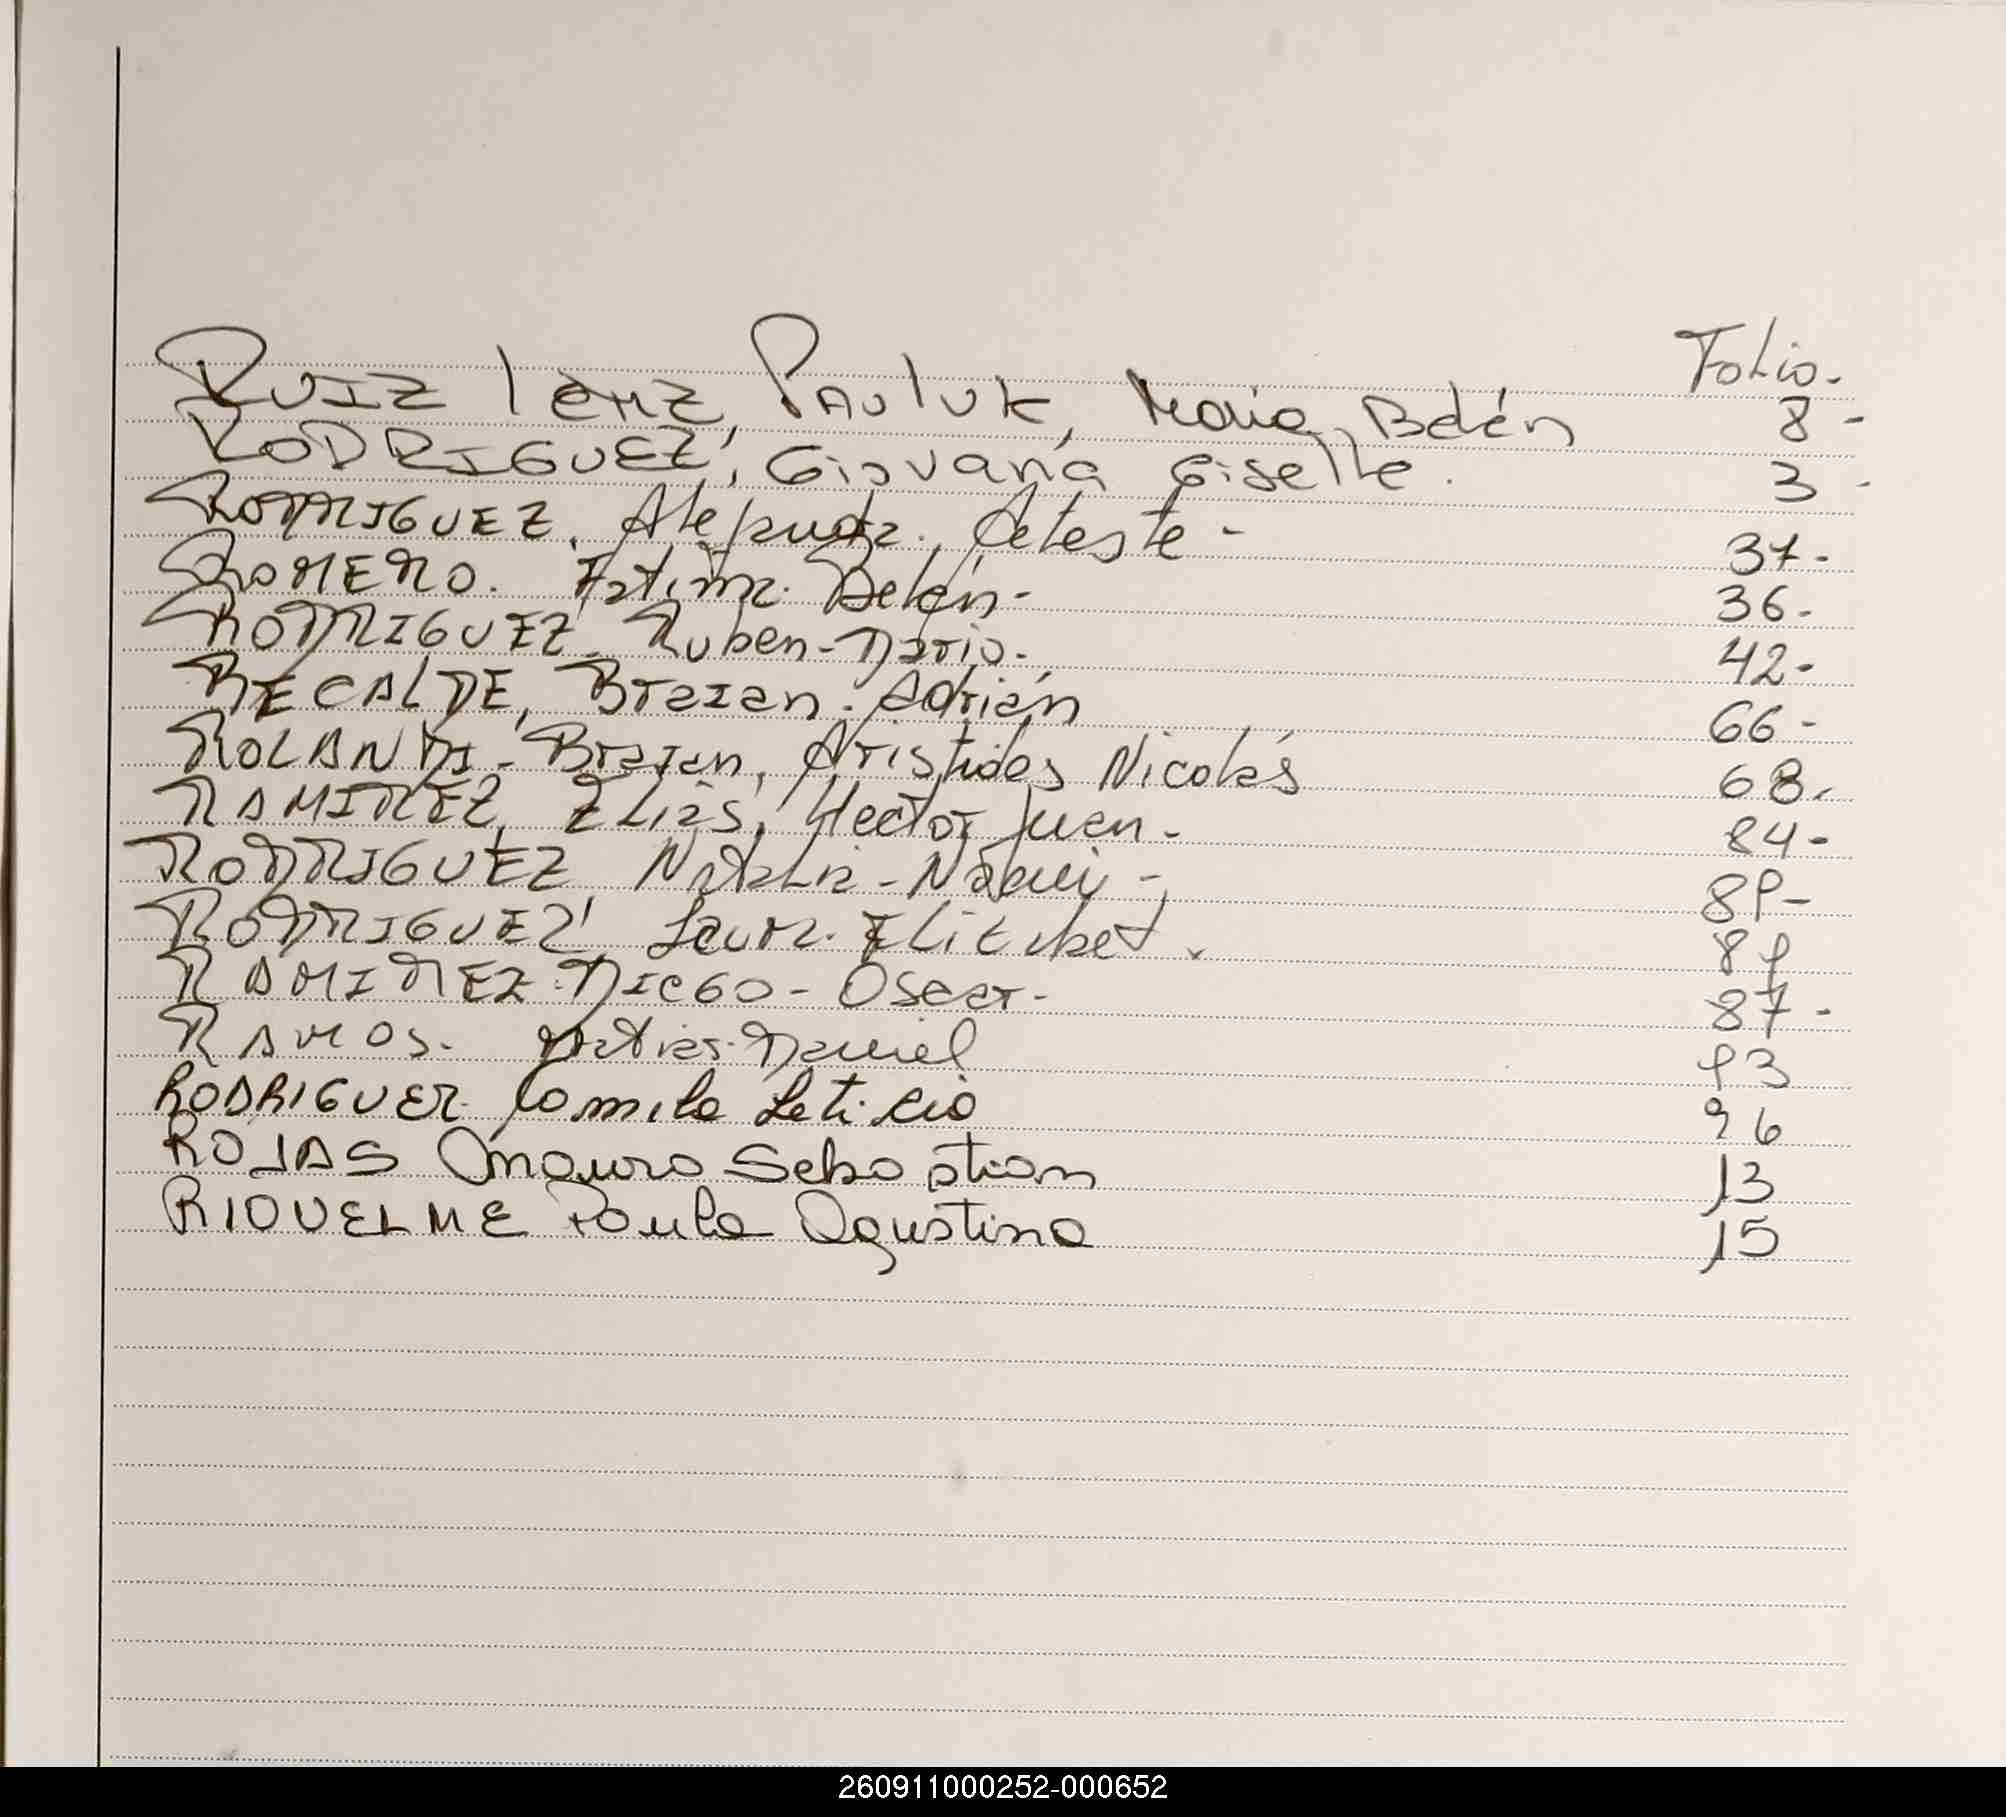 Folio.
RUIZ lemz, PAuluk, Maria, Belén 8-
RODRIGUEZ, Giovana Giselle. 3-
RODRIGUEZ, Alejandra. Celeste- 37-
ROMERO. Fatima. Belén- 36-
RODRIGUEZ- Ruben-Dario. 42-
RECALDE, Braian. Adrián 66-
ROLANDI- Braian, Aristides Nicolás 68.
RAMIREZ, Elias, Hector Juan- 84-
RODRIGUEZ, Natalia-Nahuir- 89-
RODRIGUEZ, Laura. Elizabet. 89
RAMIREZ. DIEGO- Oscar- 87-
RAMOS. Matias. Daniel 93
RODRIGUEZ. Camila Leticia 96
ROJAS Mauro Sebastian 13
RIQUELME Paula Agustina 15
260911000252-000652